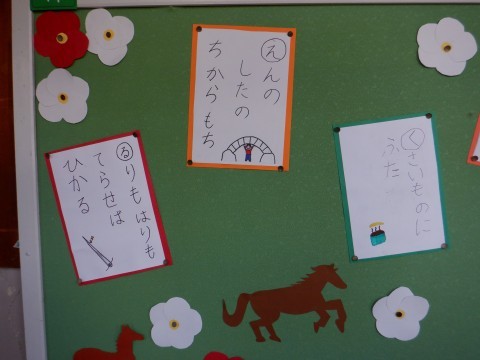 えんの
したの
ちからもち
くさいものに
ふた
るりもはりも
てらせは
ひかる